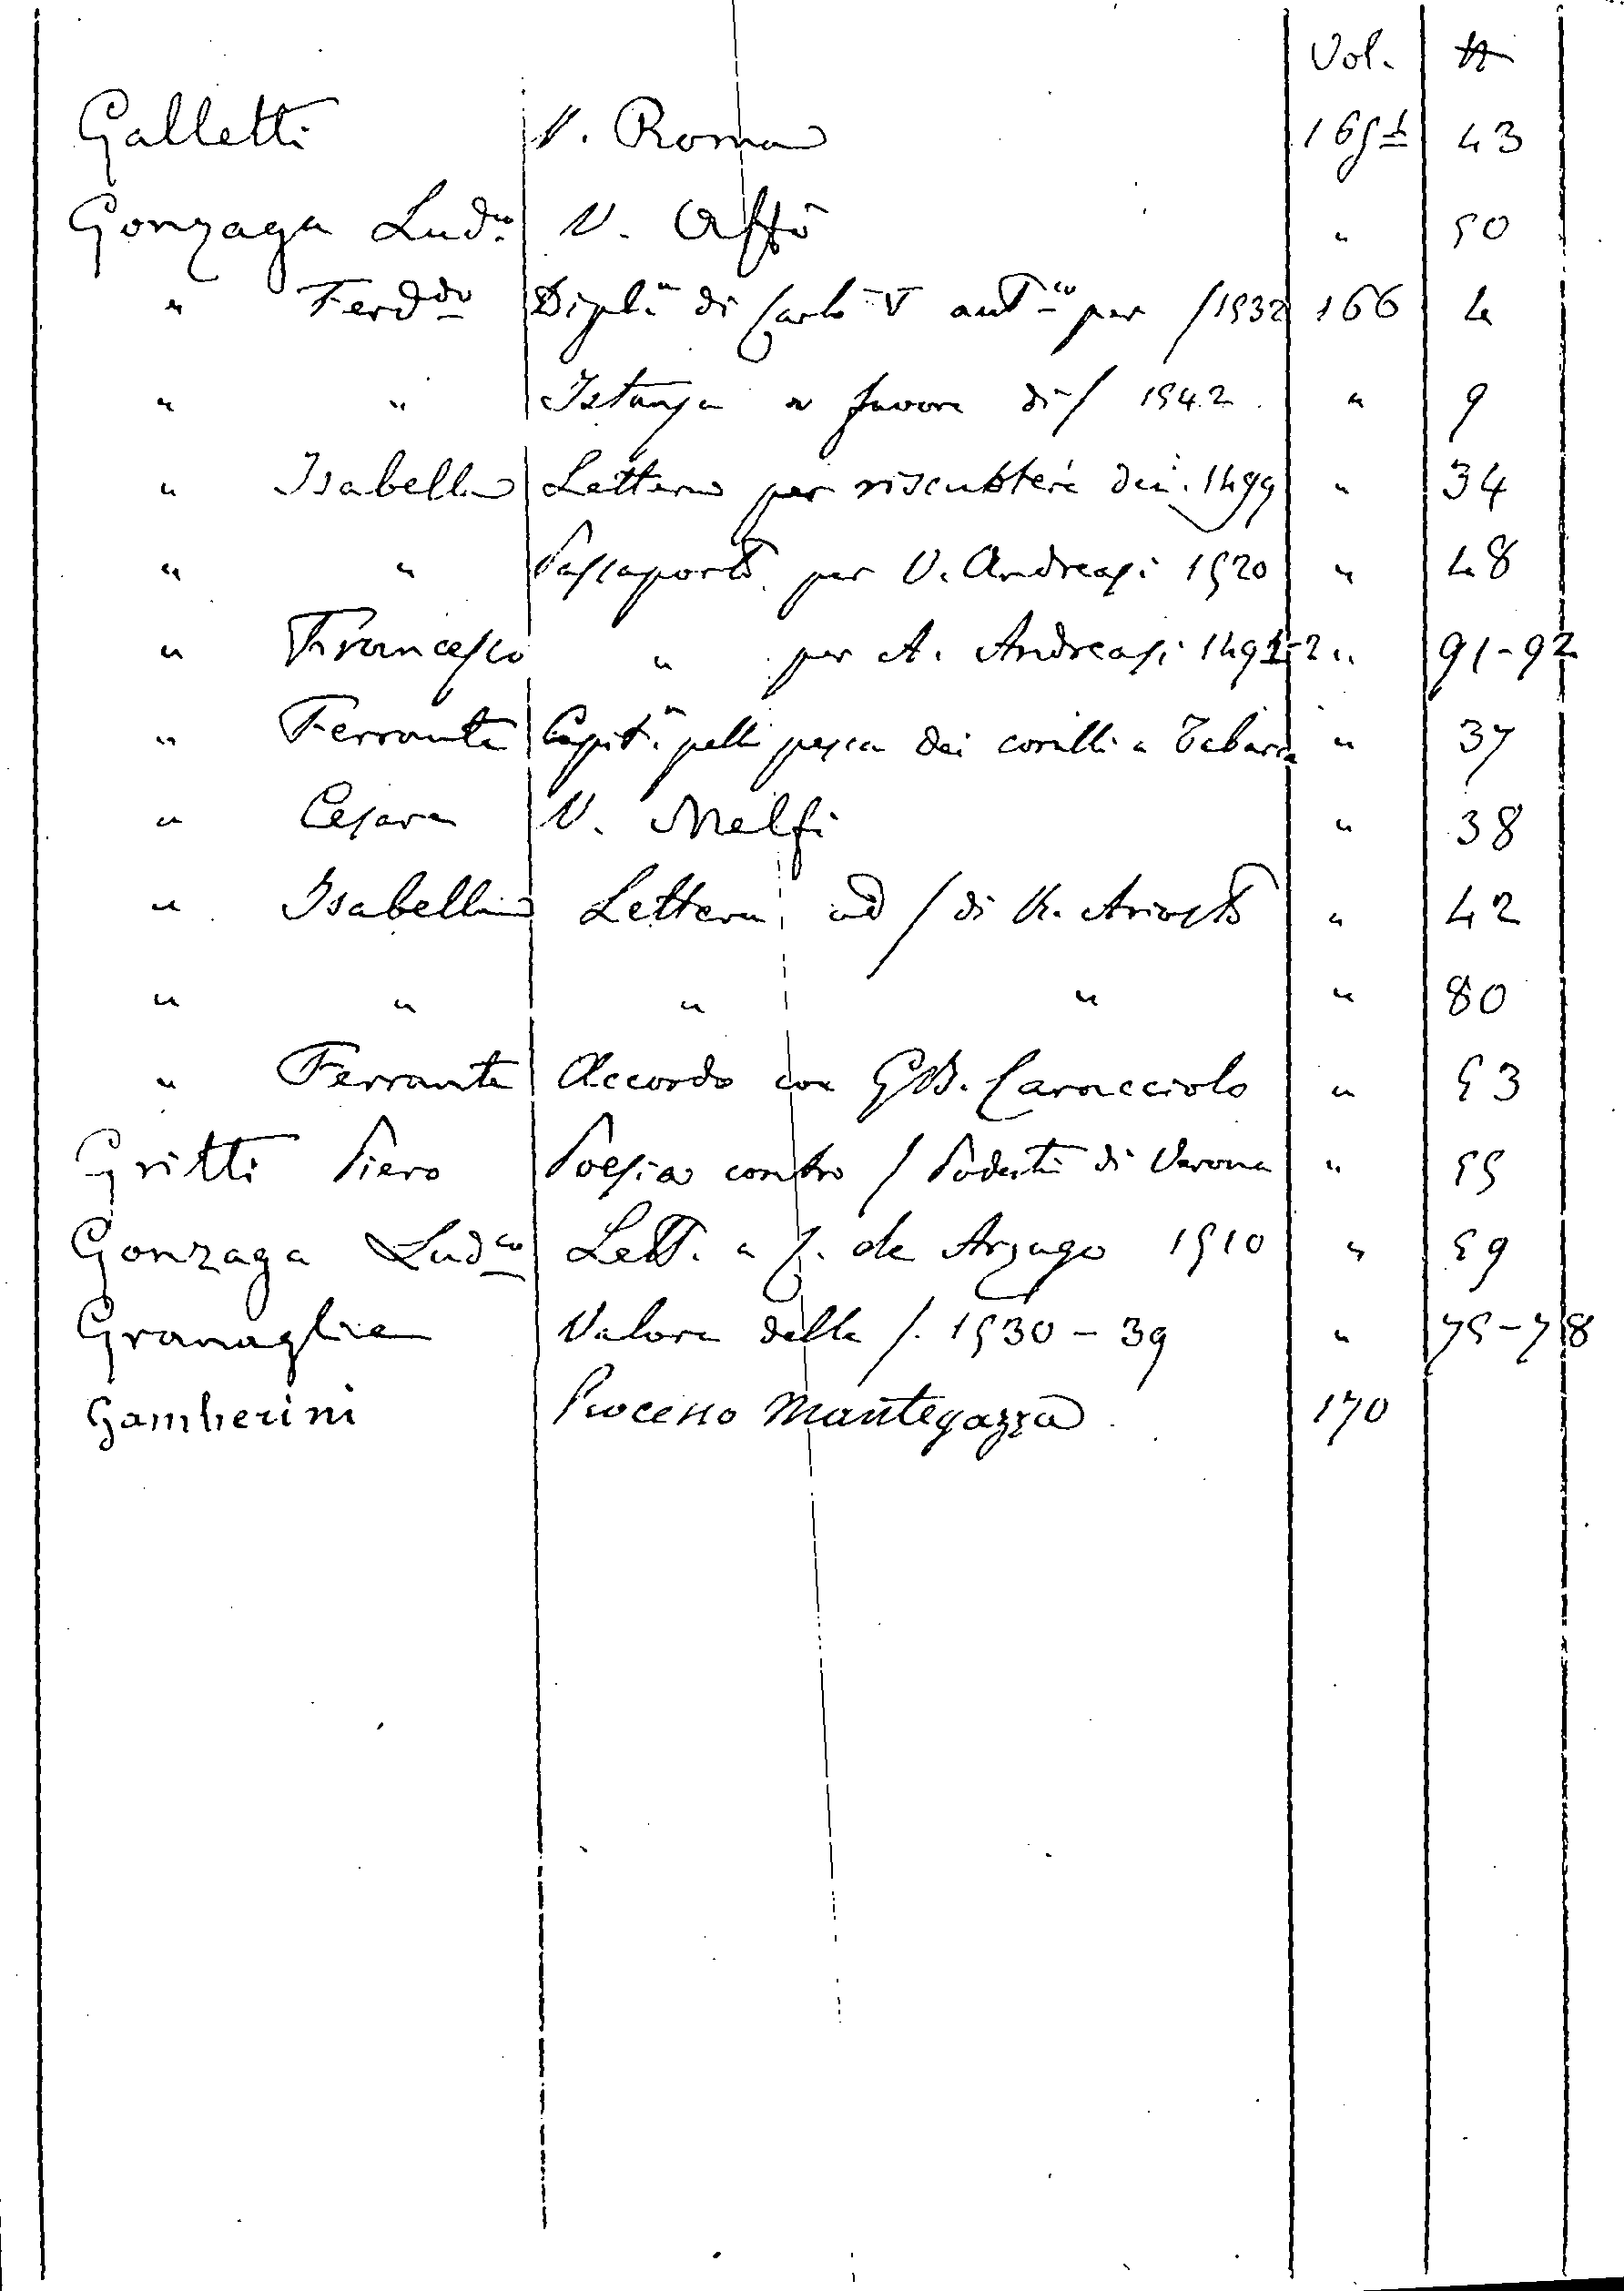 Vol. #
Galletti V. Roma 165 1/2 43
Gonzaga Lud.co V. Affò " 50
" Ferd.do Dipl.a di Carlo V aut.co per / 1532 166 4
" " Istanza a favore di / 1542. " 9
" Isabella Lettera per riscuotere dei. 1499 " 34
" " Passaporto per V. Andreasi 1520 " 48
" Francesco " per A. Andreasi 1491-2 " 91-92
" Ferrante Capit.a pella pesca dei coralli a Tabarca " 37
" Cesare V. Melfi " 38
" Isabella Lettera ad / di Ariosto " 42
" " " " " 80
" Ferrante Accordo con GB. Caracciolo " 53
Gritti Piero Poesia contro / Podestà di Verona " 55
Gonzaga Lud.co Lett. a f. de Arzago 1510 " 59
Granaglie Valore delle /. 1530-39 " 75-78
Gamberini Processo Mantegazza. 170